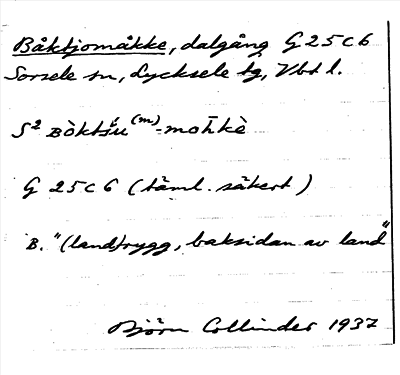 Båktjomåkke, dalgång G 25 c 6
Sorsele sn, Lycksele tg, Vbt l.
S² ʙòktś́u⁽ᵐ⁾-moh̄kè
G 25 c 6 (täml. säkert)
B. "(land)rygg, baksidan av land"
Björn Collinder 1937